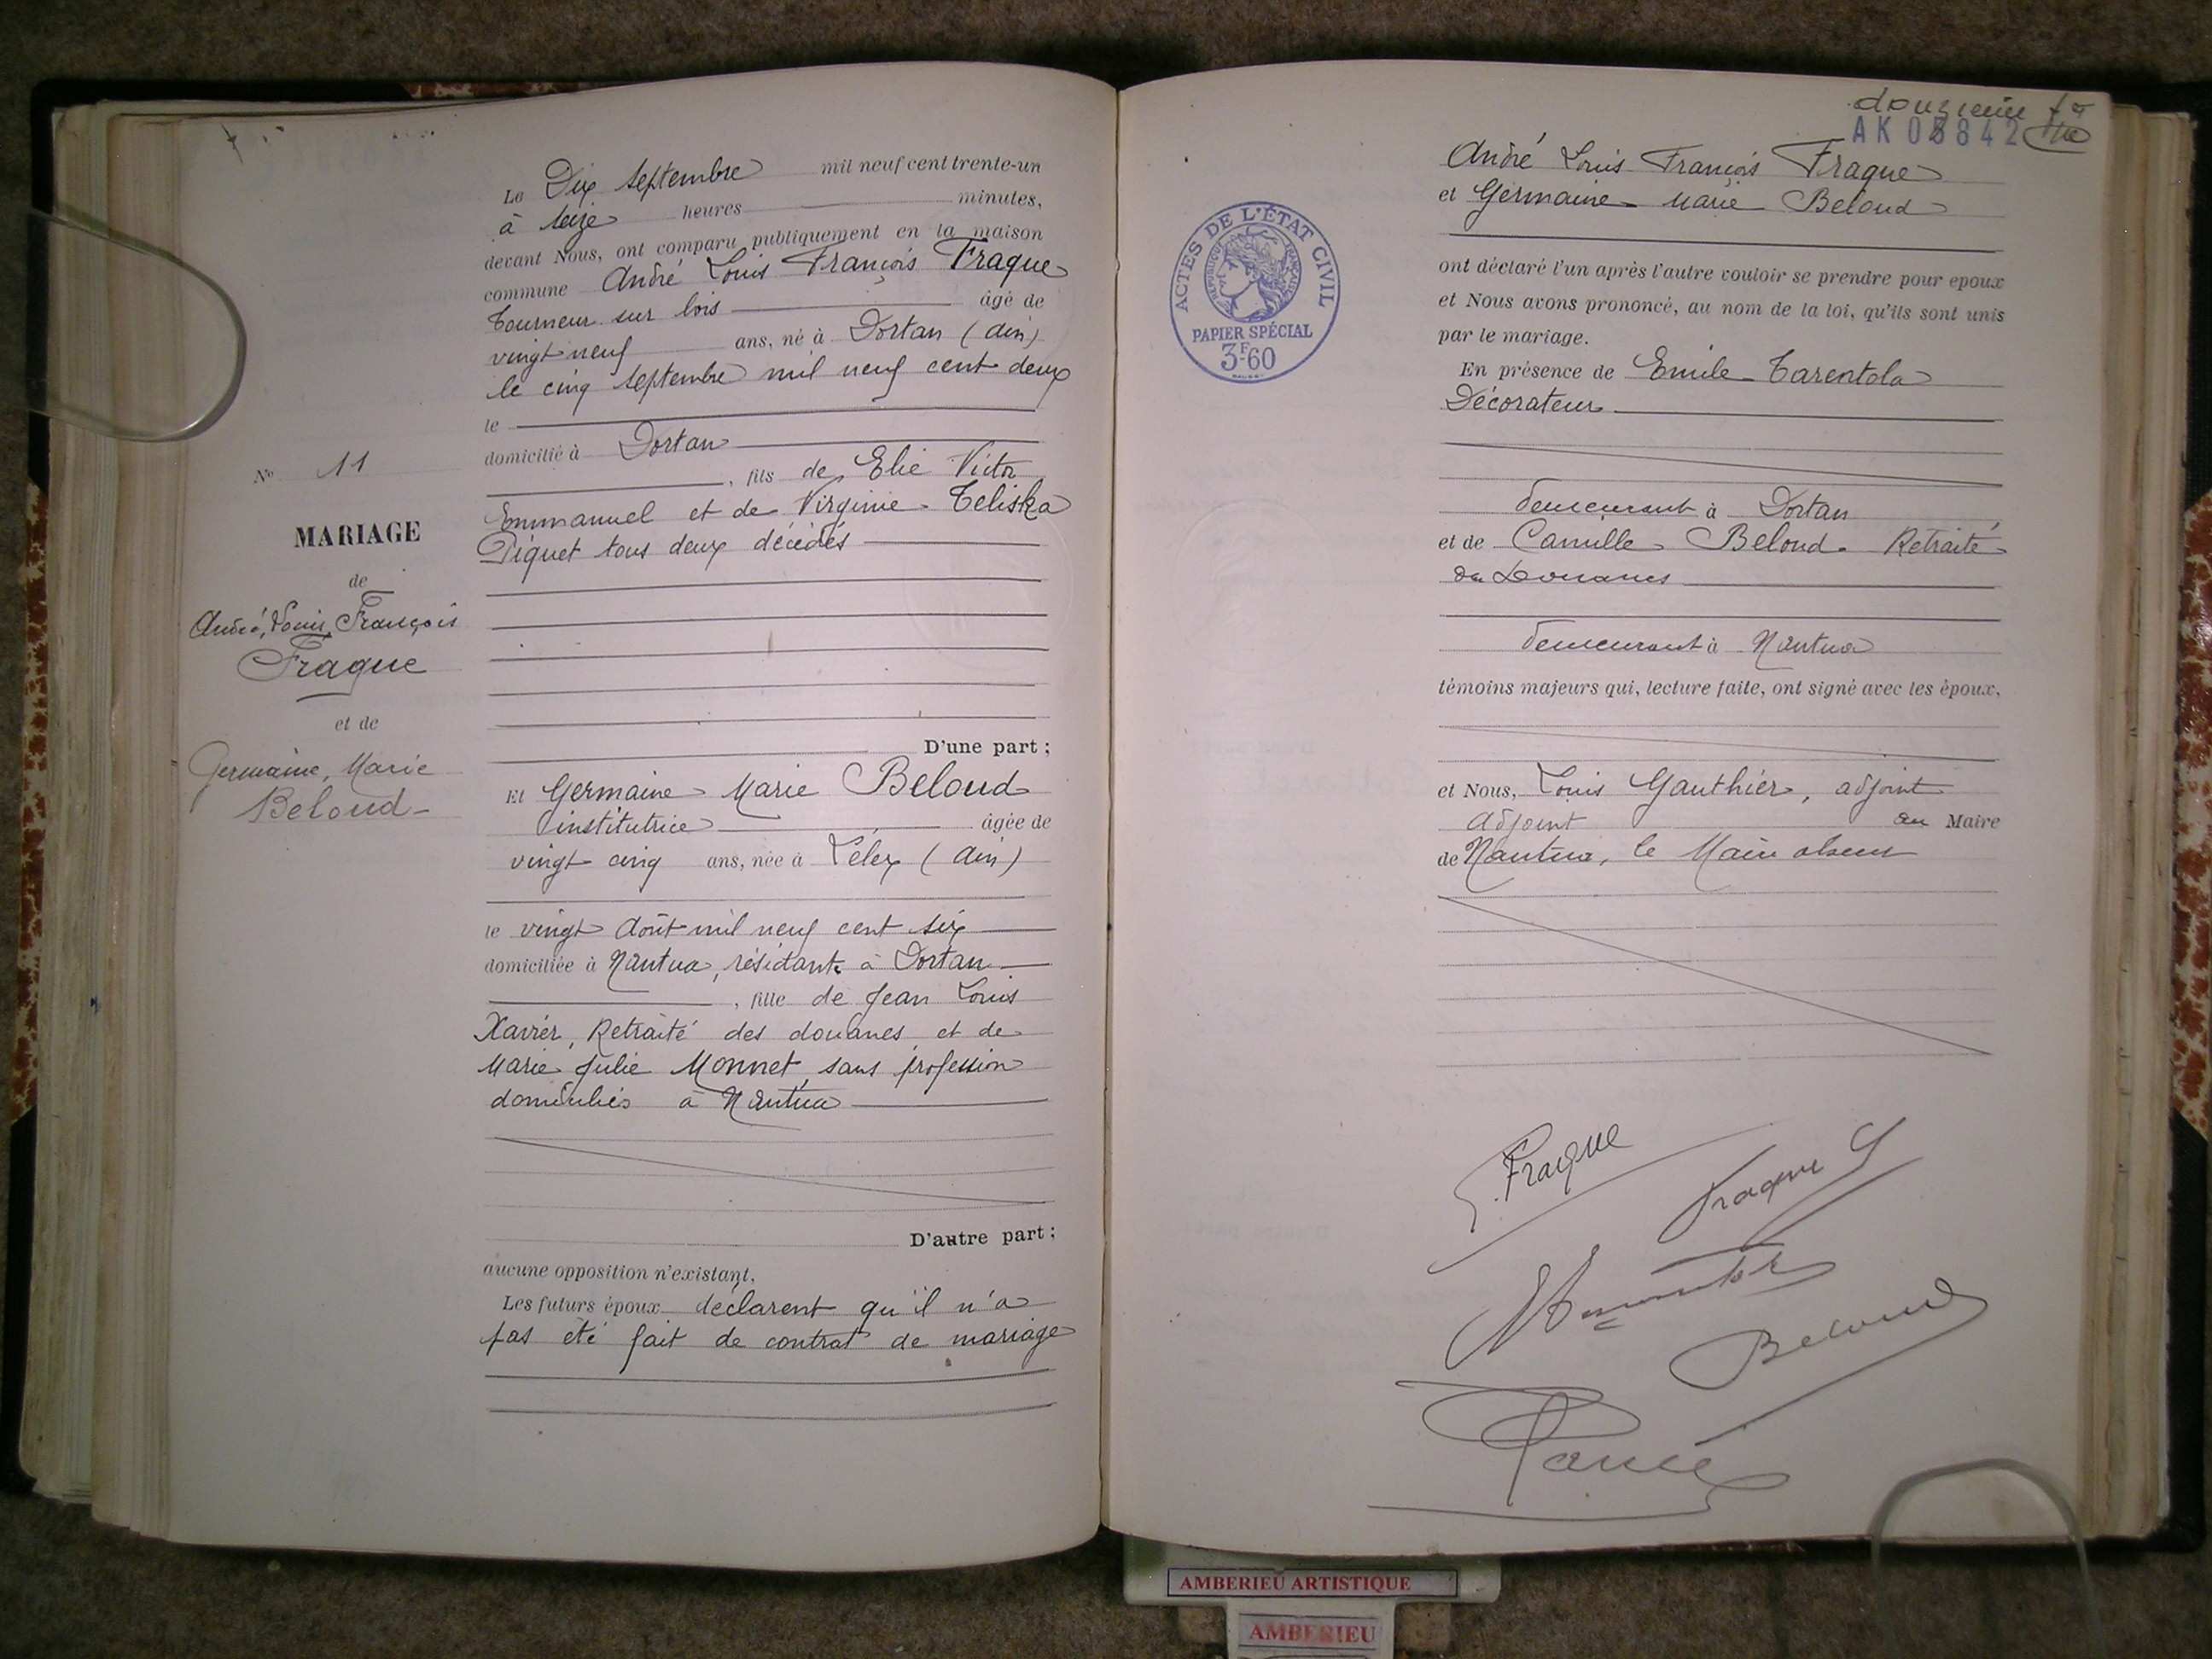 Le Dix Septembre mil neuf cent trente-un
à seize heures minutes,
devant Nous, ont comparu publiquement en la maison
commune André Louis François Fraque
Tourneur sur bois âgé de
vingt neuf ans, né à Dortan (Ain)
le cinq Septembre mil neuf cent deux
le
domicilié à Dortan
, fils de Elie Victor
Emmanuel et de Virginie Téliska
Piquet tous deux décédés
D'une part ;
Et Germaine Marie Beloud
institutrice âgée de
vingt cinq ans, née à Lélex (Ain)
le vingt Août mil neuf cent six
domiciliée à Nantua, résidant à Dortan
, fille de Jean Louis
Xavier, Retraité des douanes et de
Marie Julie Monnet, sans profession
domiciliés à Nantua
D'autre part ;
aucune opposition n'existant,
Les futurs époux déclarent qu'il n'a
pas été fait de contrat de mariage
No 11
MARIAGE
de
André, Louis, François
Fraque
et de
Germaine, Marie
Beloud
douzième
AK 05842
André Louis François Fraque
et Germaine Marie Beloud
ont déclaré l'un après l'autre vouloir se prendre pour epoux
et Nous avons prononcé, au nom de la loi, qu'ils sont unis
par le mariage.
En présence de Emile Tarentola
Décorateur
demeurant à Dortan
et de Camille Beloud. Retraité
des Douanes
demeurant à Nantua
témoins majeurs qui, lecture faite, ont signé avec les époux,
et Nous, Louis Gauthier, adjoint
Adjoint au Maire
de Nantua, le Maire absent
ACTES DE L'ÉTAT CIVIL
RÉPUBLIQUE FRANÇAISE
PAPIER SPÉCIAL
3F60
Fraque
Fraque G
Beloud
AMBERIEU ARTISTIQUE
AMBERIEU